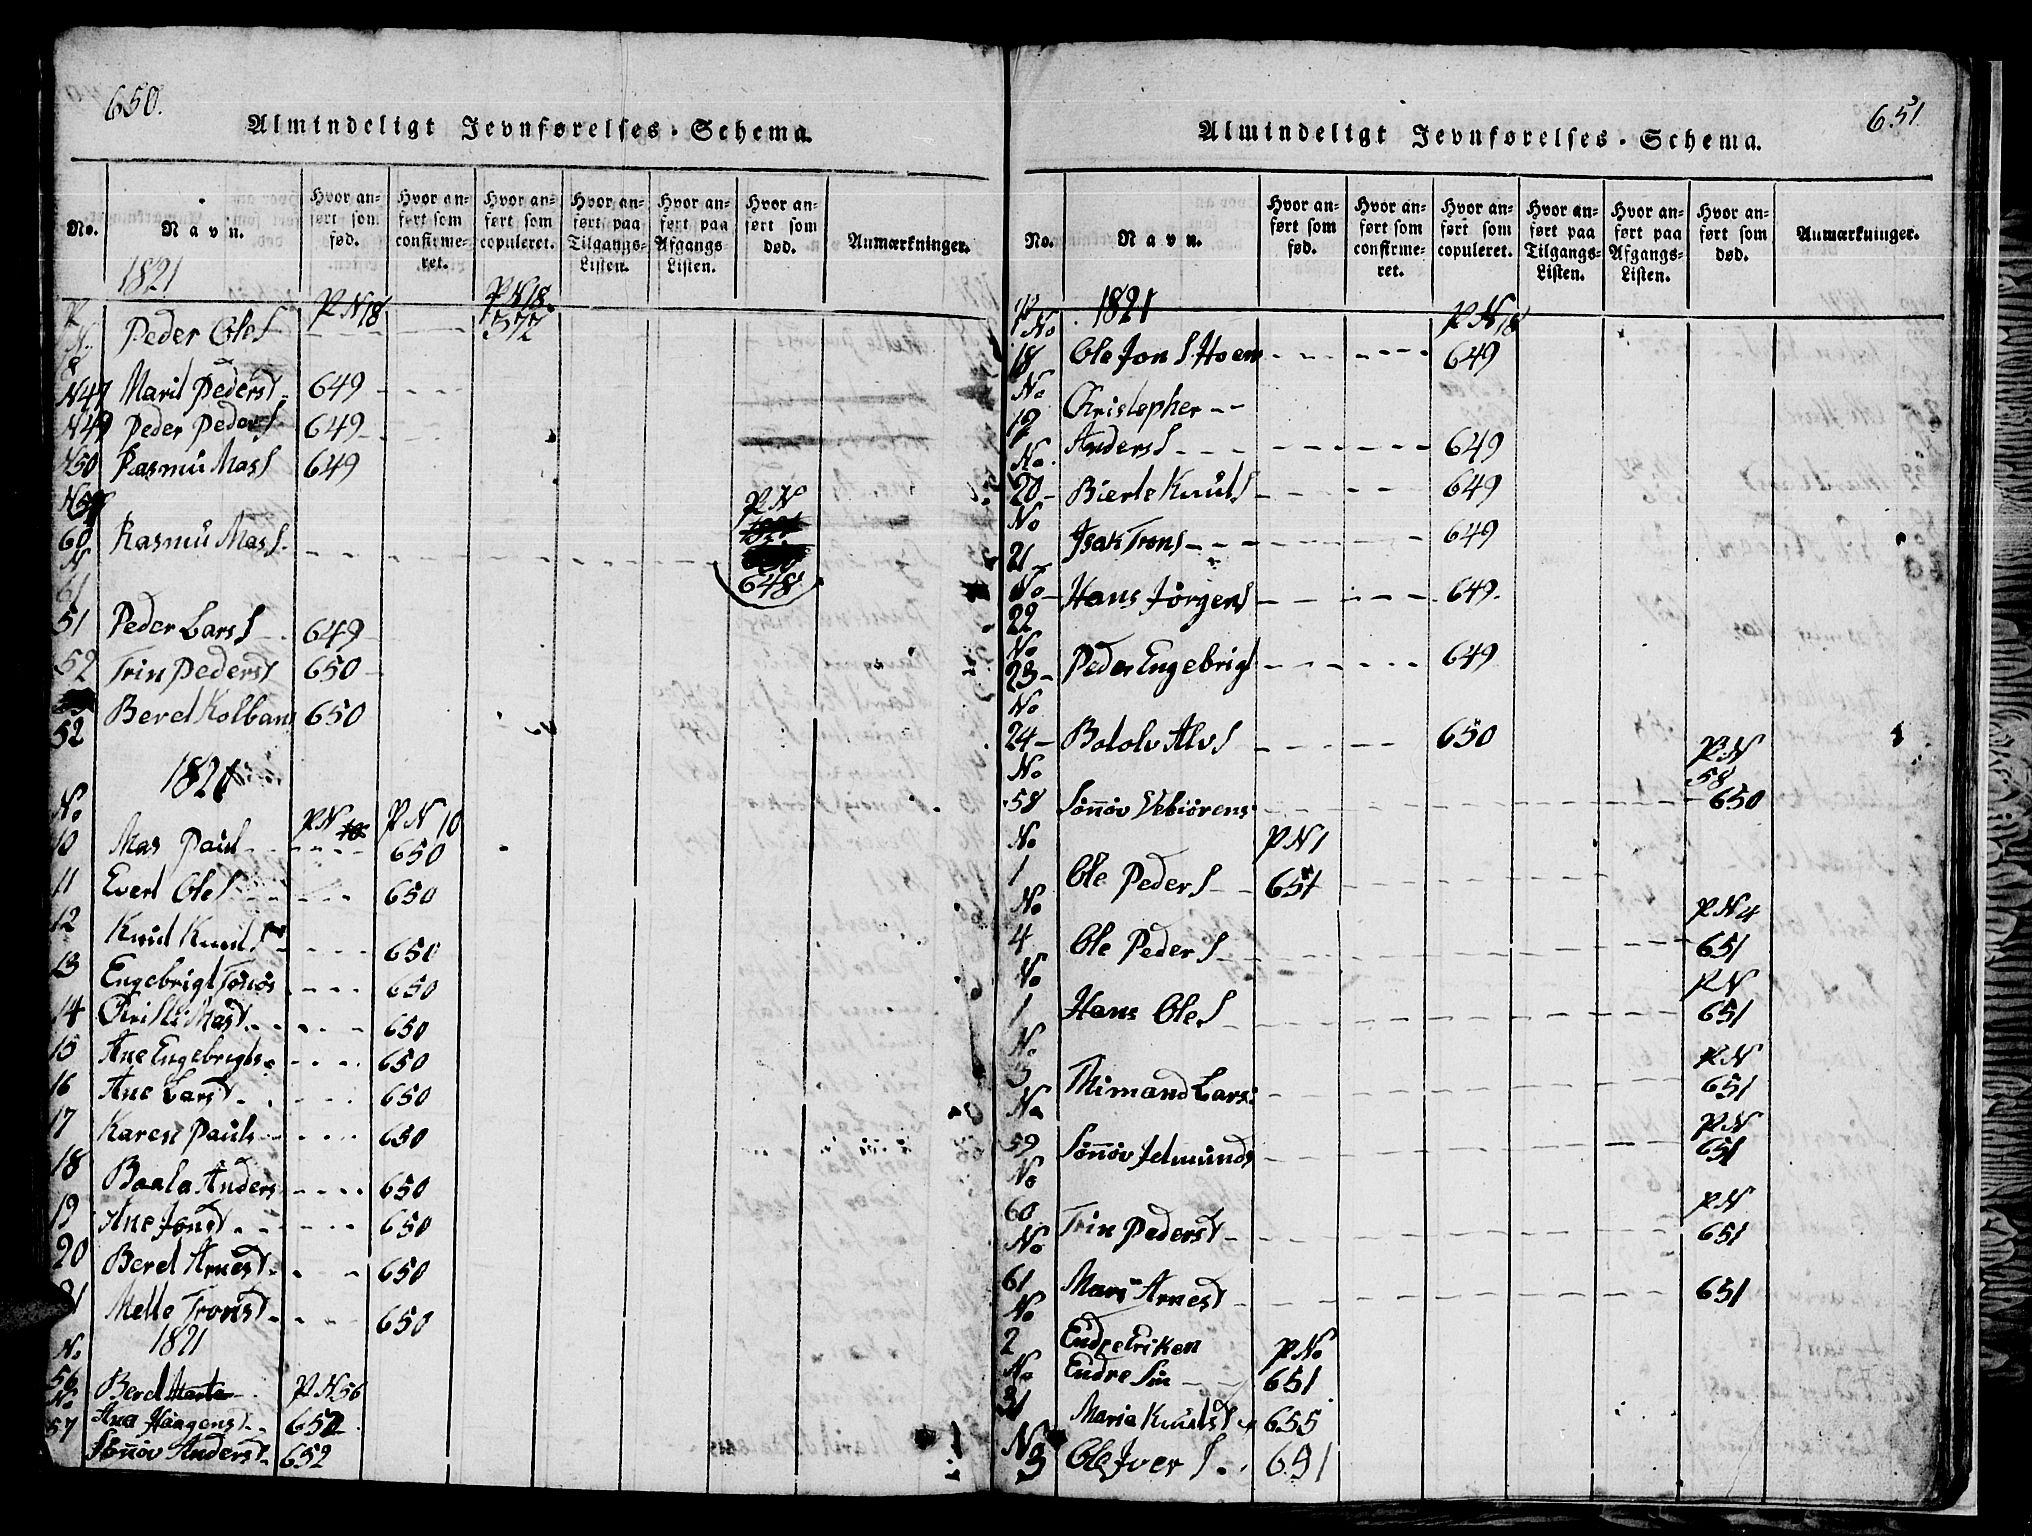 650.
Almindeligt Jevnførelses-Schema.
No.
Navn.
Hvor anført som fød.
Hvor anført som confirmeret.
Hvor anført som copuleret.
Hvor anført paa Tilgangs-Listen.
Hvor anført paa Afgangs Listen.
Hvor anført som død.
Anmærkninger.
1821
Peder OleS P N 18 P N 18. 372
N 47 Marit Pederst 649
N 49 Peder PederS 649
N 50 Rasmu MasS 649
60 Rasmu MasS P N 648
N
61
51 Peder LarsS 649
52 Trin Pederst 650
52 Beret Kolbans 650
1821
No P N P N 10
10 Mas Paul 650
11 Evert OleS 650
12 Knud KnudS 650
13 Engebrigt 650
14 Christi Mast 650
15 Ane Engebrigts 650
16 Ane Larst 650
17 Karen Pauls 650
18 Baala Anders 650
19 Ane Jonst 650
20 Beret Arnest 650
21 Mette Tronst 650
1821
No
56 Beret Marta P N 56
No
57 Ana Haagenst 652
Sönöv Anderst 652
651
Almindeligt Jevnførelses-Schema.
No.
Navn.
Hvor anført som fød.
Hvor anført som confirmeret.
Hvor anført som copuleret.
Hvor anført paa Tilgangs-Listen.
Hvor anført paa Afgangs-Listen.
Hvor anført som død.
Anmærkninger.
1821
No P N 18
18 Ole Jon S. Hoem 649
No Christopher
19 AndersS 649
No.
20 Bierte KnutS 649
No
21 Isak TronS 649
No
22 Hans JörgenS 649.
No
23 Peder Engebrigt 649
No
24 Botolv AlvS 650
No P.N 58
58 Sönöv Vebiörens 650
No P N 1
1 Ole PederS 651
No P N 4
4 Ole PederS 651
No P N
1 Hans OleS 651
No P N
5 Thimand Lars 651
No P N
59 Sönöv Jetmunds 651
No P N
60 Trin Pederst 651
No
61 Mari Arnest 651
No
2 Endre Eriken P No
No Endre Sin 651
31 Maria Knutst 655
No
3 Ole IverS 651